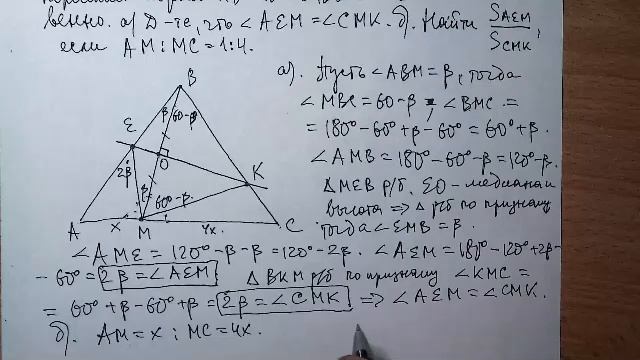 венно. а) Д-те, что ∠AEM = ∠CMK. б). Найти S_AEM / S_CMK,
если AM : MC = 1:4.
а). Пусть ∠ABM = β, тогда
∠MBC = 60-β, ∠BMC =
= 180° - 60 + β - 60° = 60° + β.
∠AMB = 180° - 60° - β = 120° - β.
△MEB р/б. EO - медиана и
высота => △ р/б по признаку
тогда ∠EMB = β.
B
β
60-β
E
O
2β
K
β
60°-β
A
x
M
4x.
C
∠AME = 120° - β - β = 120° - 2β. ∠AEM = 180 - 120° + 2β -
- 60° = 2β = ∠AEM △BKM р/б по признаку ∠KMC =
= 60° + β - 60° + β = 2β = ∠CMK => ∠AEM = ∠CMK.
б). AM = x ; MC = 4x.